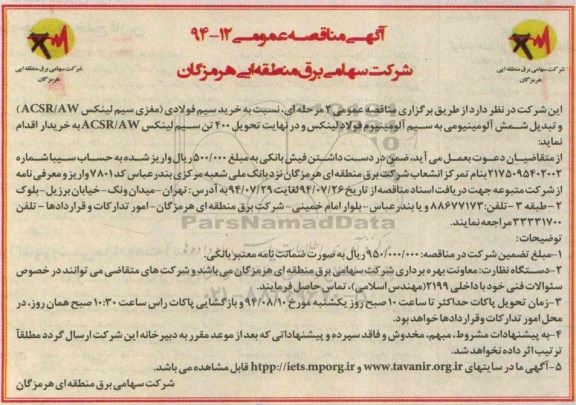 آگهی مناقصه عمومی ۱۲-۹۴
شرکت سهامی برق منطقه ای هرمزگان
شرکت سهامی برق منطقه ایی
هرمزگان
شرکت سهامی برق منطقه ایی
هرمزگان
این شرکت در نظر دارد از طریق برگزاری مناقصه عمومی ۲ مرحله ای، نسبت به خرید سیم فولادی (مغزی سیم لینکس ACSR/AW)
و تبدیل شمش آلومینیومی به سیم آلومینیوم فولاد لینکس و در نهایت تحویل ۴۰۰ تن سیم لینکس ACSR/AW به خریدار اقدام
نماید:
از متقاضیان دعوت بعمل می آید، ضمن در دست داشتن فیش بانکی به مبلغ ۵۰۰/۰۰۰ ریال واریز شده به حساب سیبا شماره
۲۱۷۵۰۹۵۴۰۲۰۰۲ بنام تمرکز انشعاب شرکت برق منطقه ای هرمزگان نزد بانک ملی شعبه مرکزی بندرعباس کد ۷۸۰۱ واریز و معرفی نامه
از شرکت متبوعه جهت دریافت اسناد مناقصه از تاریخ ۹۴/۰۷/۲۶ لغایت ۹۴/۰۷/۲۹ به آدرس: تهران - میدان ونک - خیابان برزیل - بلوک
۲ - طبقه ۳ - تلفن: ۸۸۶۷۷۱۷۳ و یا بندرعباس - بلوار امام خمینی - شرکت برق منطقه ای هرمزگان - امور تدارکات و قراردادها - تلفن
۳۳۳۳۱۷۰۰ مراجعه نمایند.
توضیحات:
۱-مبلغ تضمین شرکت در مناقصه: ۹۵۰/۰۰۰/۰۰۰ ریال به صورت ضمانت نامه معتبر بانکی.
۲-دستگاه نظارت: معاونت بهره برداری شرکت سهامی برق منطقه ای هرمزگان می باشد و شرکت های متقاضی می توانند در خصوص
سئوالات فنی خود با داخلی ۲۱۹۹ (مهندس اسلامی)، تماس حاصل فرمایند.
۳-زمان تحویل پاکات حداکثر تا ساعت ۱۰ صبح روز یکشنبه مورخ ۹۴/۰۸/۱۰ و بازگشایی پاکات راس ساعت ۱۰:۳۰ صبح همان روز، در
محل امور تدارکات و قراردادها خواهد بود.
۴-به پیشنهادات مشروط، مبهم، مخدوش و فاقد سپرده و پیشنهاداتی که بعد از موعد مقرر به دبیرخانه این شرکت ارسال گردد مطلقاً
ترتیب اثر داده نخواهد شد.
۵-آگهی ما در سایتهای www.tavanir.org.ir و htpp://iets.mporg.ir قابل مشاهده می باشد.
شرکت سهامی برق منطقه ای هرمزگان
ParsNamadData